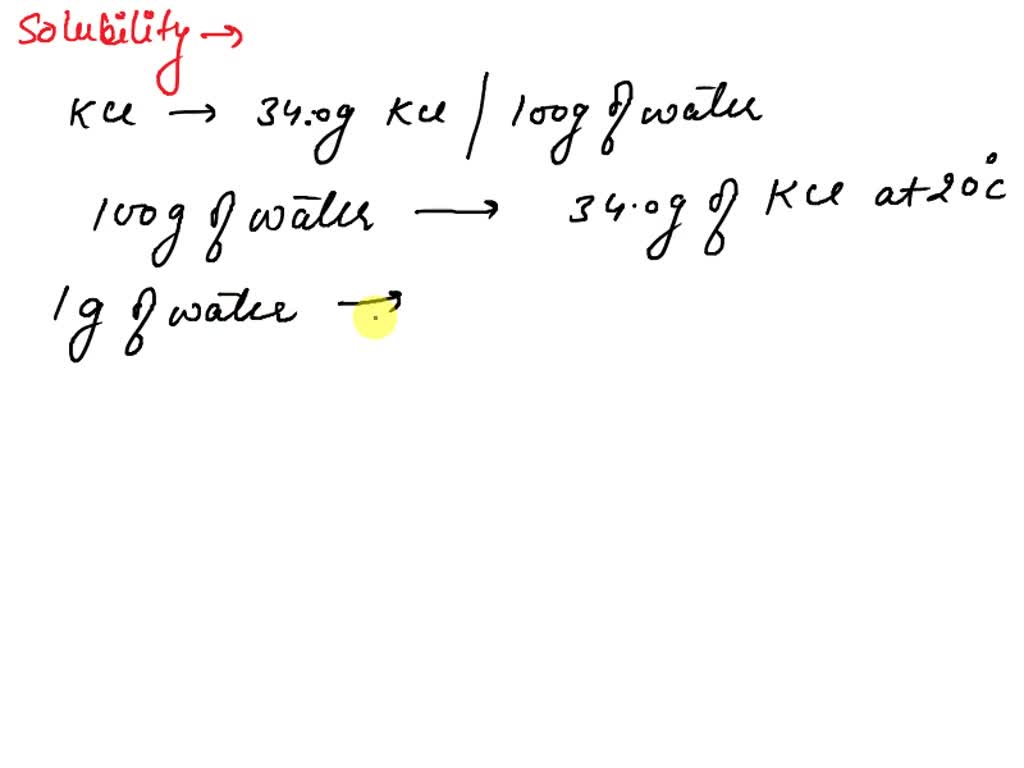 Solubility →
KCl → 34.0g KCl / 100g of water
100g of water → 34.0g of KCl at 20°C
1g of water →